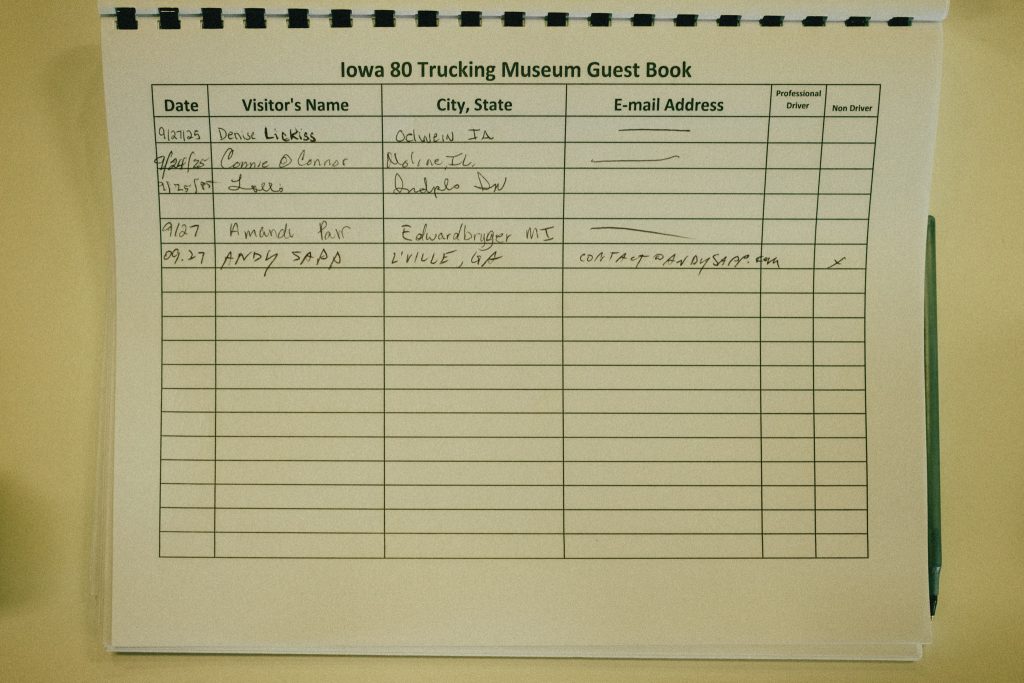 Iowa 80 Trucking Museum Guest Book
Date Visitor's Name City, State E-mail Address Professional Driver Non Driver
9/27/25 Denise Lickiss Oelwein IA
9/24/25 Connie O Connor Moline, IL.
9/25/ Indpls IN
9/27 Amanda Parr MI
09.27 ANDY SAPP L'VILLE, GA CONTACT@ANDYSAPP.com x